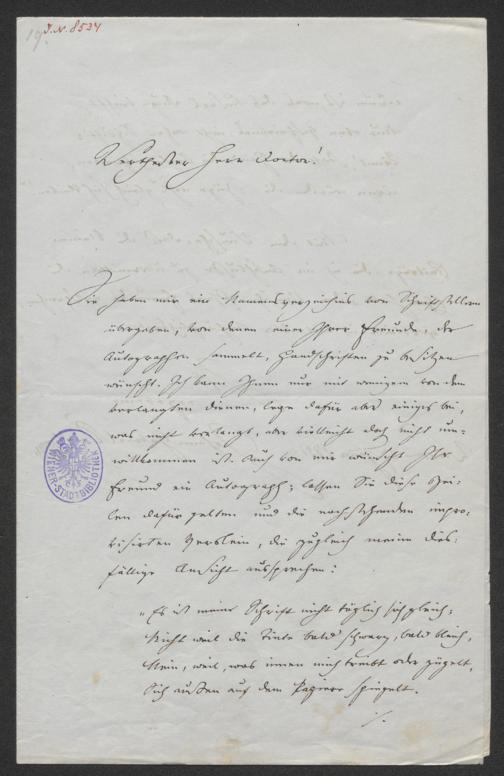 19.
J.N. 8534
Verehrtester Herr Doctor!
Sie haben mir ein Namensverzeichnis von Schriftstellern
übergeben, von denen einer Ihrer Freunde, der
Autographen sammelt, Handschriften zu besitzen
wünscht. Ich kann Ihnen nur mit wenigem von dem
verlangten dienen, lege dafür aber einiges bei,
was nicht verlangt, aber vielleicht doch nicht un-
willkommen ist. Auch von mir wünscht Ihr
Freund ein Autograph; lassen Sie diese Zei-
len dafür gelten und die nachstehenden impro-
visirten Verslein, die zugleich meine dies-
fällige Ansicht aussprechen:
„Es ist meine Schrift nicht täglich sich gleich;
Nicht weil die Tinte bald schwarz, bald bleich,
Nein, weil, was innen mich treibt oder zügelt,
Sich außen auf dem Papiere spiegelt.
./.
WIENER-STADTBIBLIOTHEK